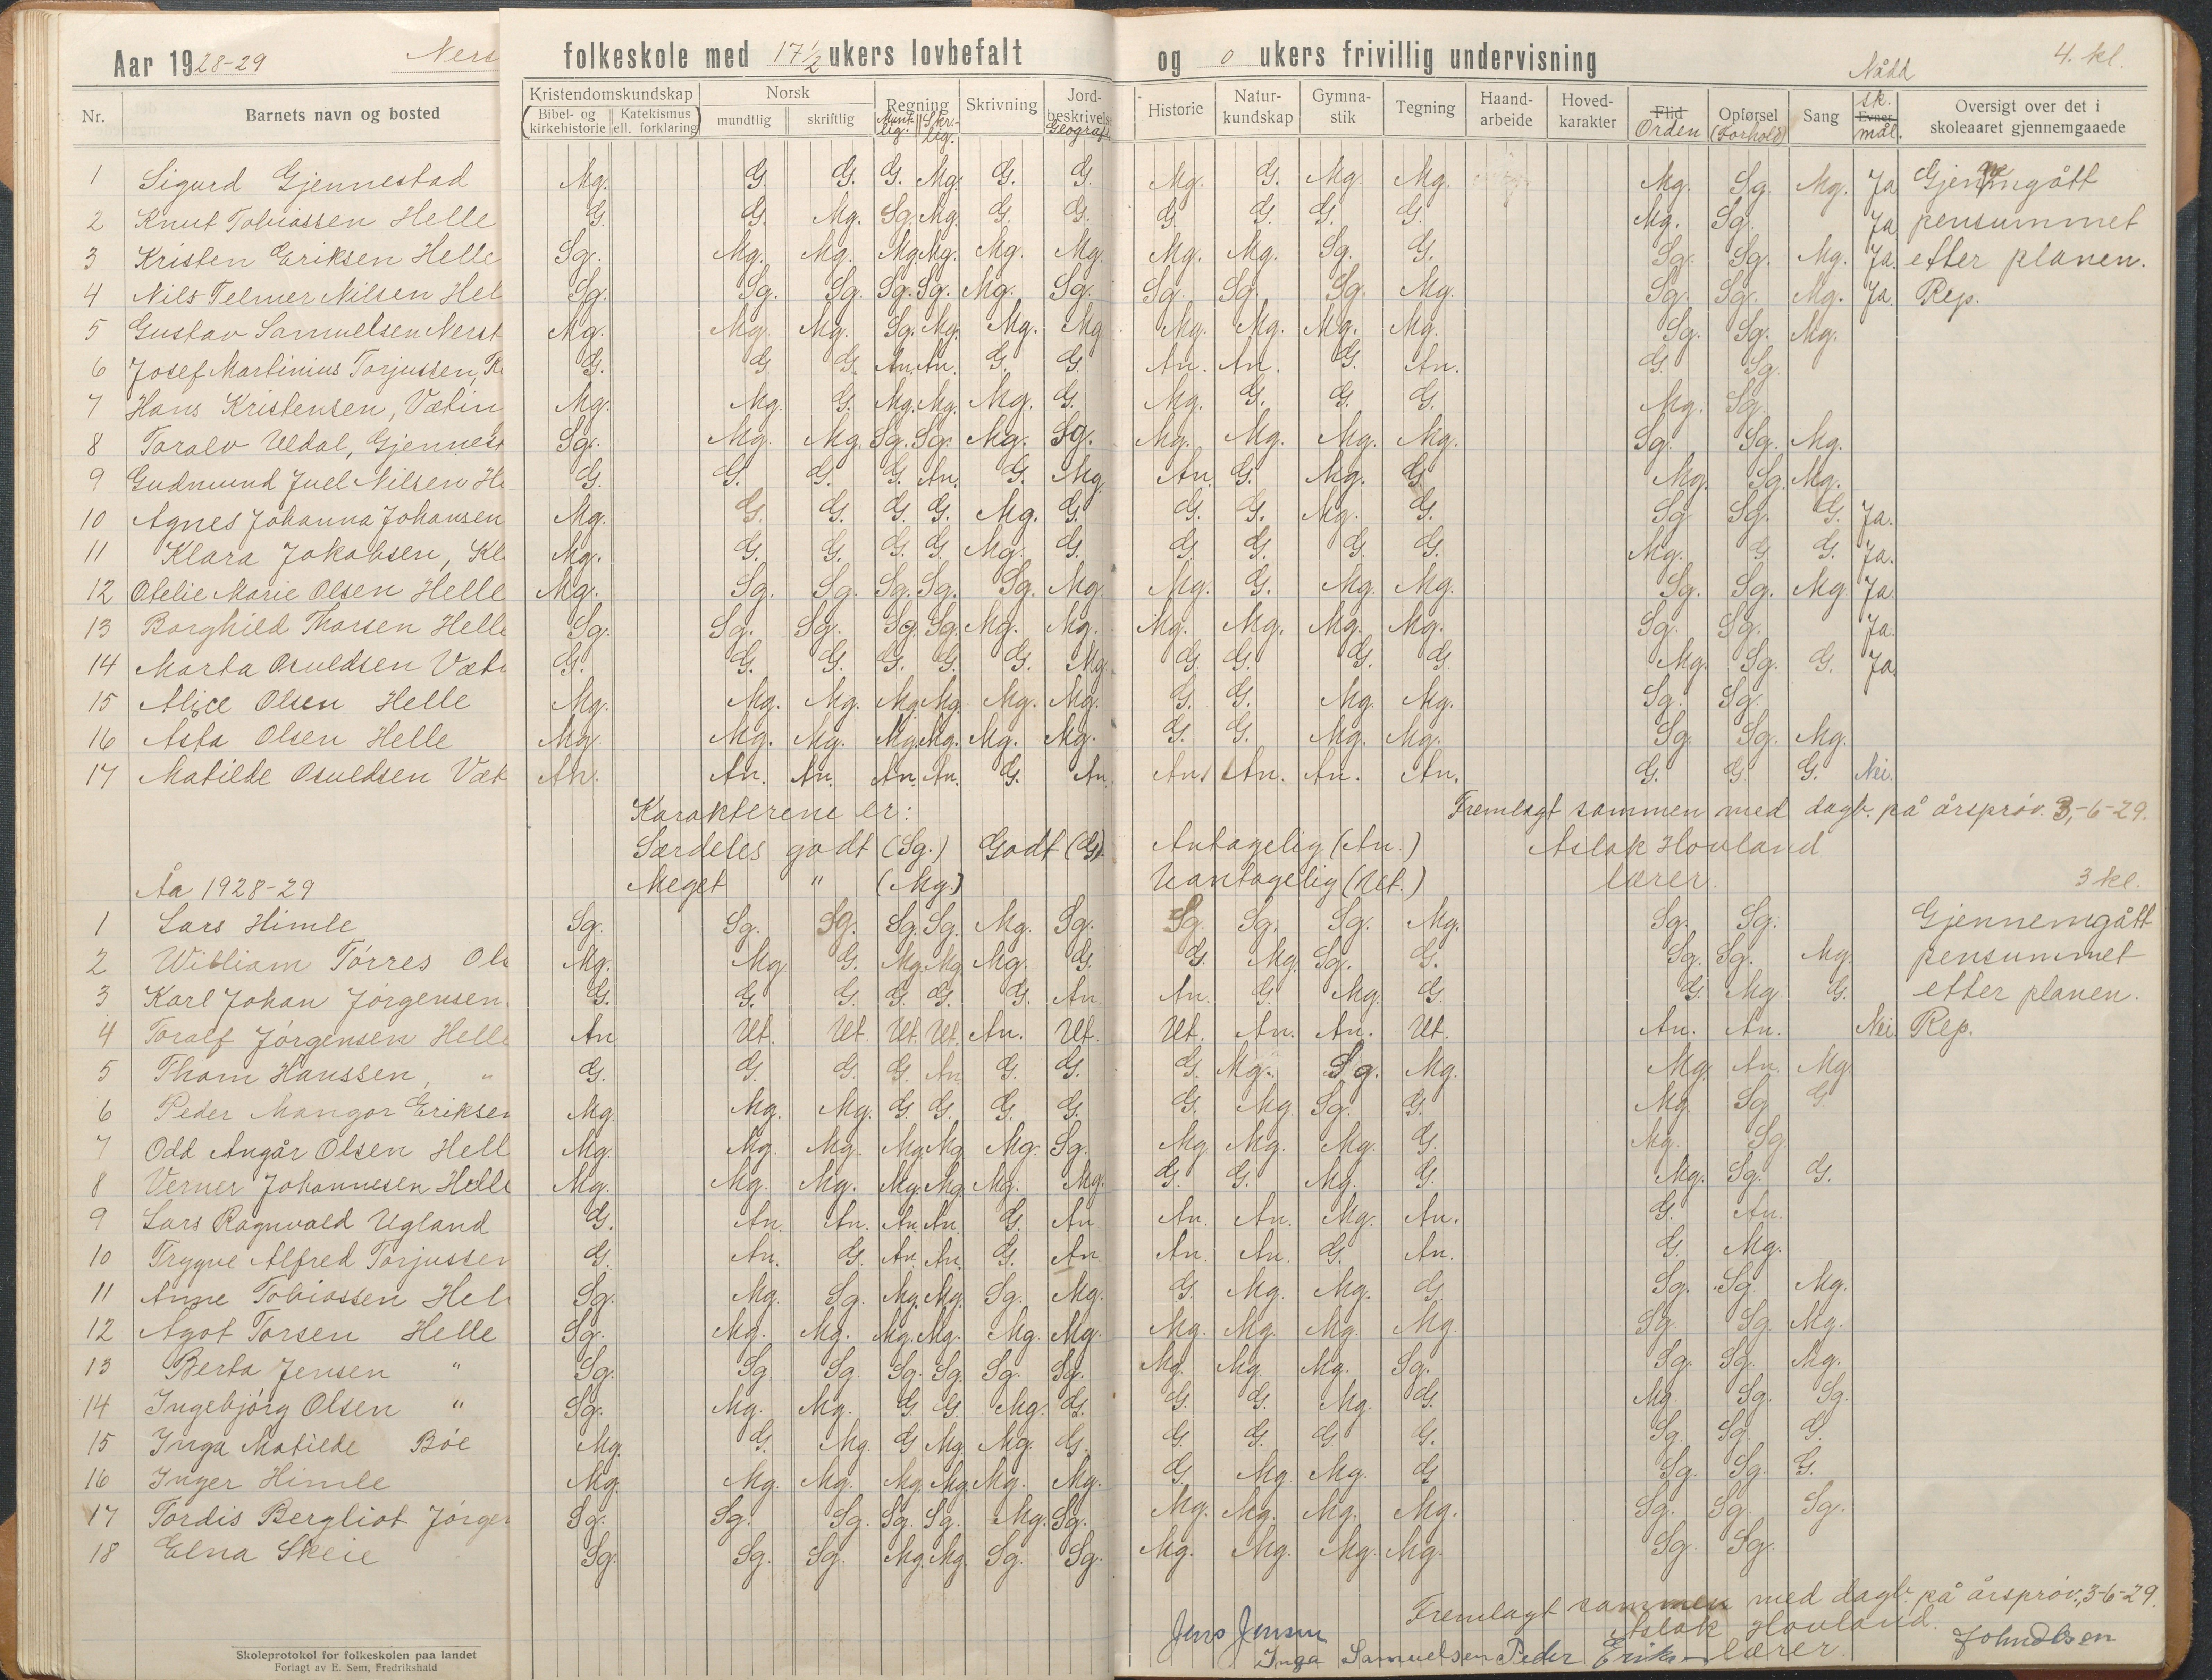 Aar 1928-29 Ners folkeskole med 17 1/2 ukers lovbefalt og 0 ukers frivillig undervisning 4. kl.
Nr. Barnets navn og bosted Kristendomskundskap Bibel- og kirkehistorie Katekismus ell. forklaring Norsk mundtlig skriftlig Regning Munt-lig. Skri-lig. Skrivning Jord-beskrivelse Geografi Historie Natur-kundskap Gymna-stik Tegning Haand-arbeide Hoved-karakter Flid Orden Opførsel (Forhold) Sang Nådd sk. Evner mål. Oversigt over det i skoleaaret gjennemgaaede
1 Sigurd Gjennestad Mg. G. G. G. Mg. G. G. Mg. G. Mg. Mg. Mg. Sg. Mg. Ja Gjennemgått
2 Knut Tobiassen Helle G. G. Mg. Sg. Mg. G. G. G. G. G. G. Mg. Sg. Ja pensummet
3 Kristen Eriksen Helle Sg. Mg. Mg. Mg. Mg. Mg. Mg. Mg. Mg. Sg. G. Sg. Sg. Mg. Ja. efter planen.
4 Nils Telmer Nilsen Hel Sg. Sg. Sg. Sg. Sg. Mg. Sg. Sg. Sg. Sg. Mg. Sg. Sg. Mg. Ja. Rep.
5 Gustav Samuelsen Nerst Mg. Mg. Mg. Sg. Mg. Mg. Mg. Mg. Mg. Mg. Mg. Sg. Sg. Mg.
6 Josef Martinius Torjussen, R G. G. G. An. An. G. G. An. An. G. An. G. Sg.
7 Hans Kristensen, Vætin Mg. Mg. G. Mg. Mg. Mg. G. Mg. G. G. G. Mg. Sg.
8 Toralv Uldal, Gjennest Sg. Mg. Mg. Sg. Sg. Mg. Sg. Mg. Mg. Mg. Mg. Sg. Sg. Mg.
9 Gudmund Juel Nilsen He G. G. G. G. An. G. Mg. An. G. Mg. G. Mg. Sg. Mg.
10 Agnes Johanna Johansen Mg. G. G. G. G. Mg. G. G. G. Mg. G. Sg. Sg. G. Ja.
11 Klara Jakobsen, Kl Mg. G. G. G. G. Mg. G. G. G. G. G. Mg. G. G. Ja.
12 Otelie Marie Olsen Helle Mg. Sg. Sg. Sg. Sg. Sg. Mg. Mg. G. Mg. Mg. Sg. Sg. Mg. Ja.
13 Borghild Thorsen Helle Sg. Sg. Sg. Sg. Sg. Mg. Mg. Mg. Mg. Mg. Mg. Sg. Sg. Ja.
14 Marta Osuldsen Væt G. G. G. G. G. G. Mg. G. G. G. G. Mg. Sg. G. Ja
15 Alice Olsen Helle Mg. Mg. Mg. Mg. Mg. Mg. Mg. G. G. Mg. Mg. Sg. Sg.
16 Asta Olsen Helle Mg. Mg. Mg. Mg. Mg. Mg. Mg. G. G. Mg. Mg. Sg. Sg. Mg.
17 Matilde Osuldsen Væt An. An. An. An. An. G. An. An. An. An. An. G. G. G. Nei.
Karakterene er: Fremlagt sammen med dagb. på årsprøv. 3-6-29.
Særdeles godt (Sg.) Godt (G). Antagelig (An.) Aslak Hovland
Meget " (Mg.) Uantagelig (Ut.) lærer.
Åa 1928-29 3 kl.
1 Lars Himle Sg. Sg. Sg. Sg. Sg. Mg. Sg. Sg. Sg. Sg. Mg. Sg. Sg. Gjennemgått
2 William Tørres Ols Mg. Mg. G. Mg. Mg. Mg. G. G. Mg. Sg. G. Sg. Sg. Mg. pensummet
3 Karl Johan Jørgensen. G. G. G. G. G. G. An. An. G. Mg. G. G. Mg. G. efter planen.
4 Toralf Jørgensen Helle An Ut. Ut. Ut. Ut. An. Ut. Ut. An. An. Ut. An. An. Nei Rep.
5 Thom Hanssen, " G. G. G. G. An. G. G. G. Mg. Sg. Mg. Mg. An. Mg.
6 Peder Mangor Eriksen Mg. Mg. Mg. G. G. G. G. G. Mg. Sg. G. Mg. Sg. G.
7 Odd Angår Olsen Hell Mg. Mg. Mg. Mg. Mg. Mg. Sg. Mg. Mg. Mg. G. Mg. Sg
8 Verner Johannesen Helle Mg. Mg. Mg. Mg. Mg. Mg. Mg. G. G. Mg. G. Mg. Sg. G.
9 Lars Ragnvald Ugland G. An. An. An. An. G. An An. An. Mg. An. G. An.
10 Trygve Alfred Torjussen G. An. G. An. An. G. An. An. An. G. An. G. Mg.
11 Anne Tobiassen Hel Sg. Mg. Sg. Mg. Mg. Sg. Mg. G. Mg. Mg. G. Sg. Sg. Mg.
12 Ågot Torsen Helle Sg. Mg. Mg. Mg. Mg. Mg. Mg. Mg. Mg. Mg. Mg. Sg. Sg. Mg.
13 Berta Jensen " Sg. Sg. Sg. Sg. Sg. Sg. Sg. Mg. Mg. Mg. Sg. Sg. Sg. Mg.
14 Ingebjørg Olsen " Sg. Mg. Mg. G. G. Mg. G. G. G. Mg. G. Mg. Sg. Sg.
15 Inga Matilde Bøe Mg. G. Mg. G Mg. Mg. G. G. G. G. G. Sg. Sg. G.
16 Inger Himle Mg. Mg. Mg. Mg. Mg. Mg. Mg. G. Mg. Mg. G. Sg. Sg. G.
17 Tordis Bergliot Jørgen Sg. Sg. Sg. Sg. Sg. Mg. Sg. Mg. Mg. Mg. Mg. Sg. Sg. Sg.
18 Elna Skeie Sg. Sg. Sg. Mg. Mg. Sg. Sg. Mg. Mg. Mg. Mg. Sg. Sg.
Fremlagt sammen med dagb. på årsprøv., 3-6-29.
Jens Jensen Aslak Hovland.
Inga Samuelsen Peder Eriksen lærer. John Olsen
Skoleprotokol for folkeskolen paa landet
Forlagt av E. Sem, Fredrikshald